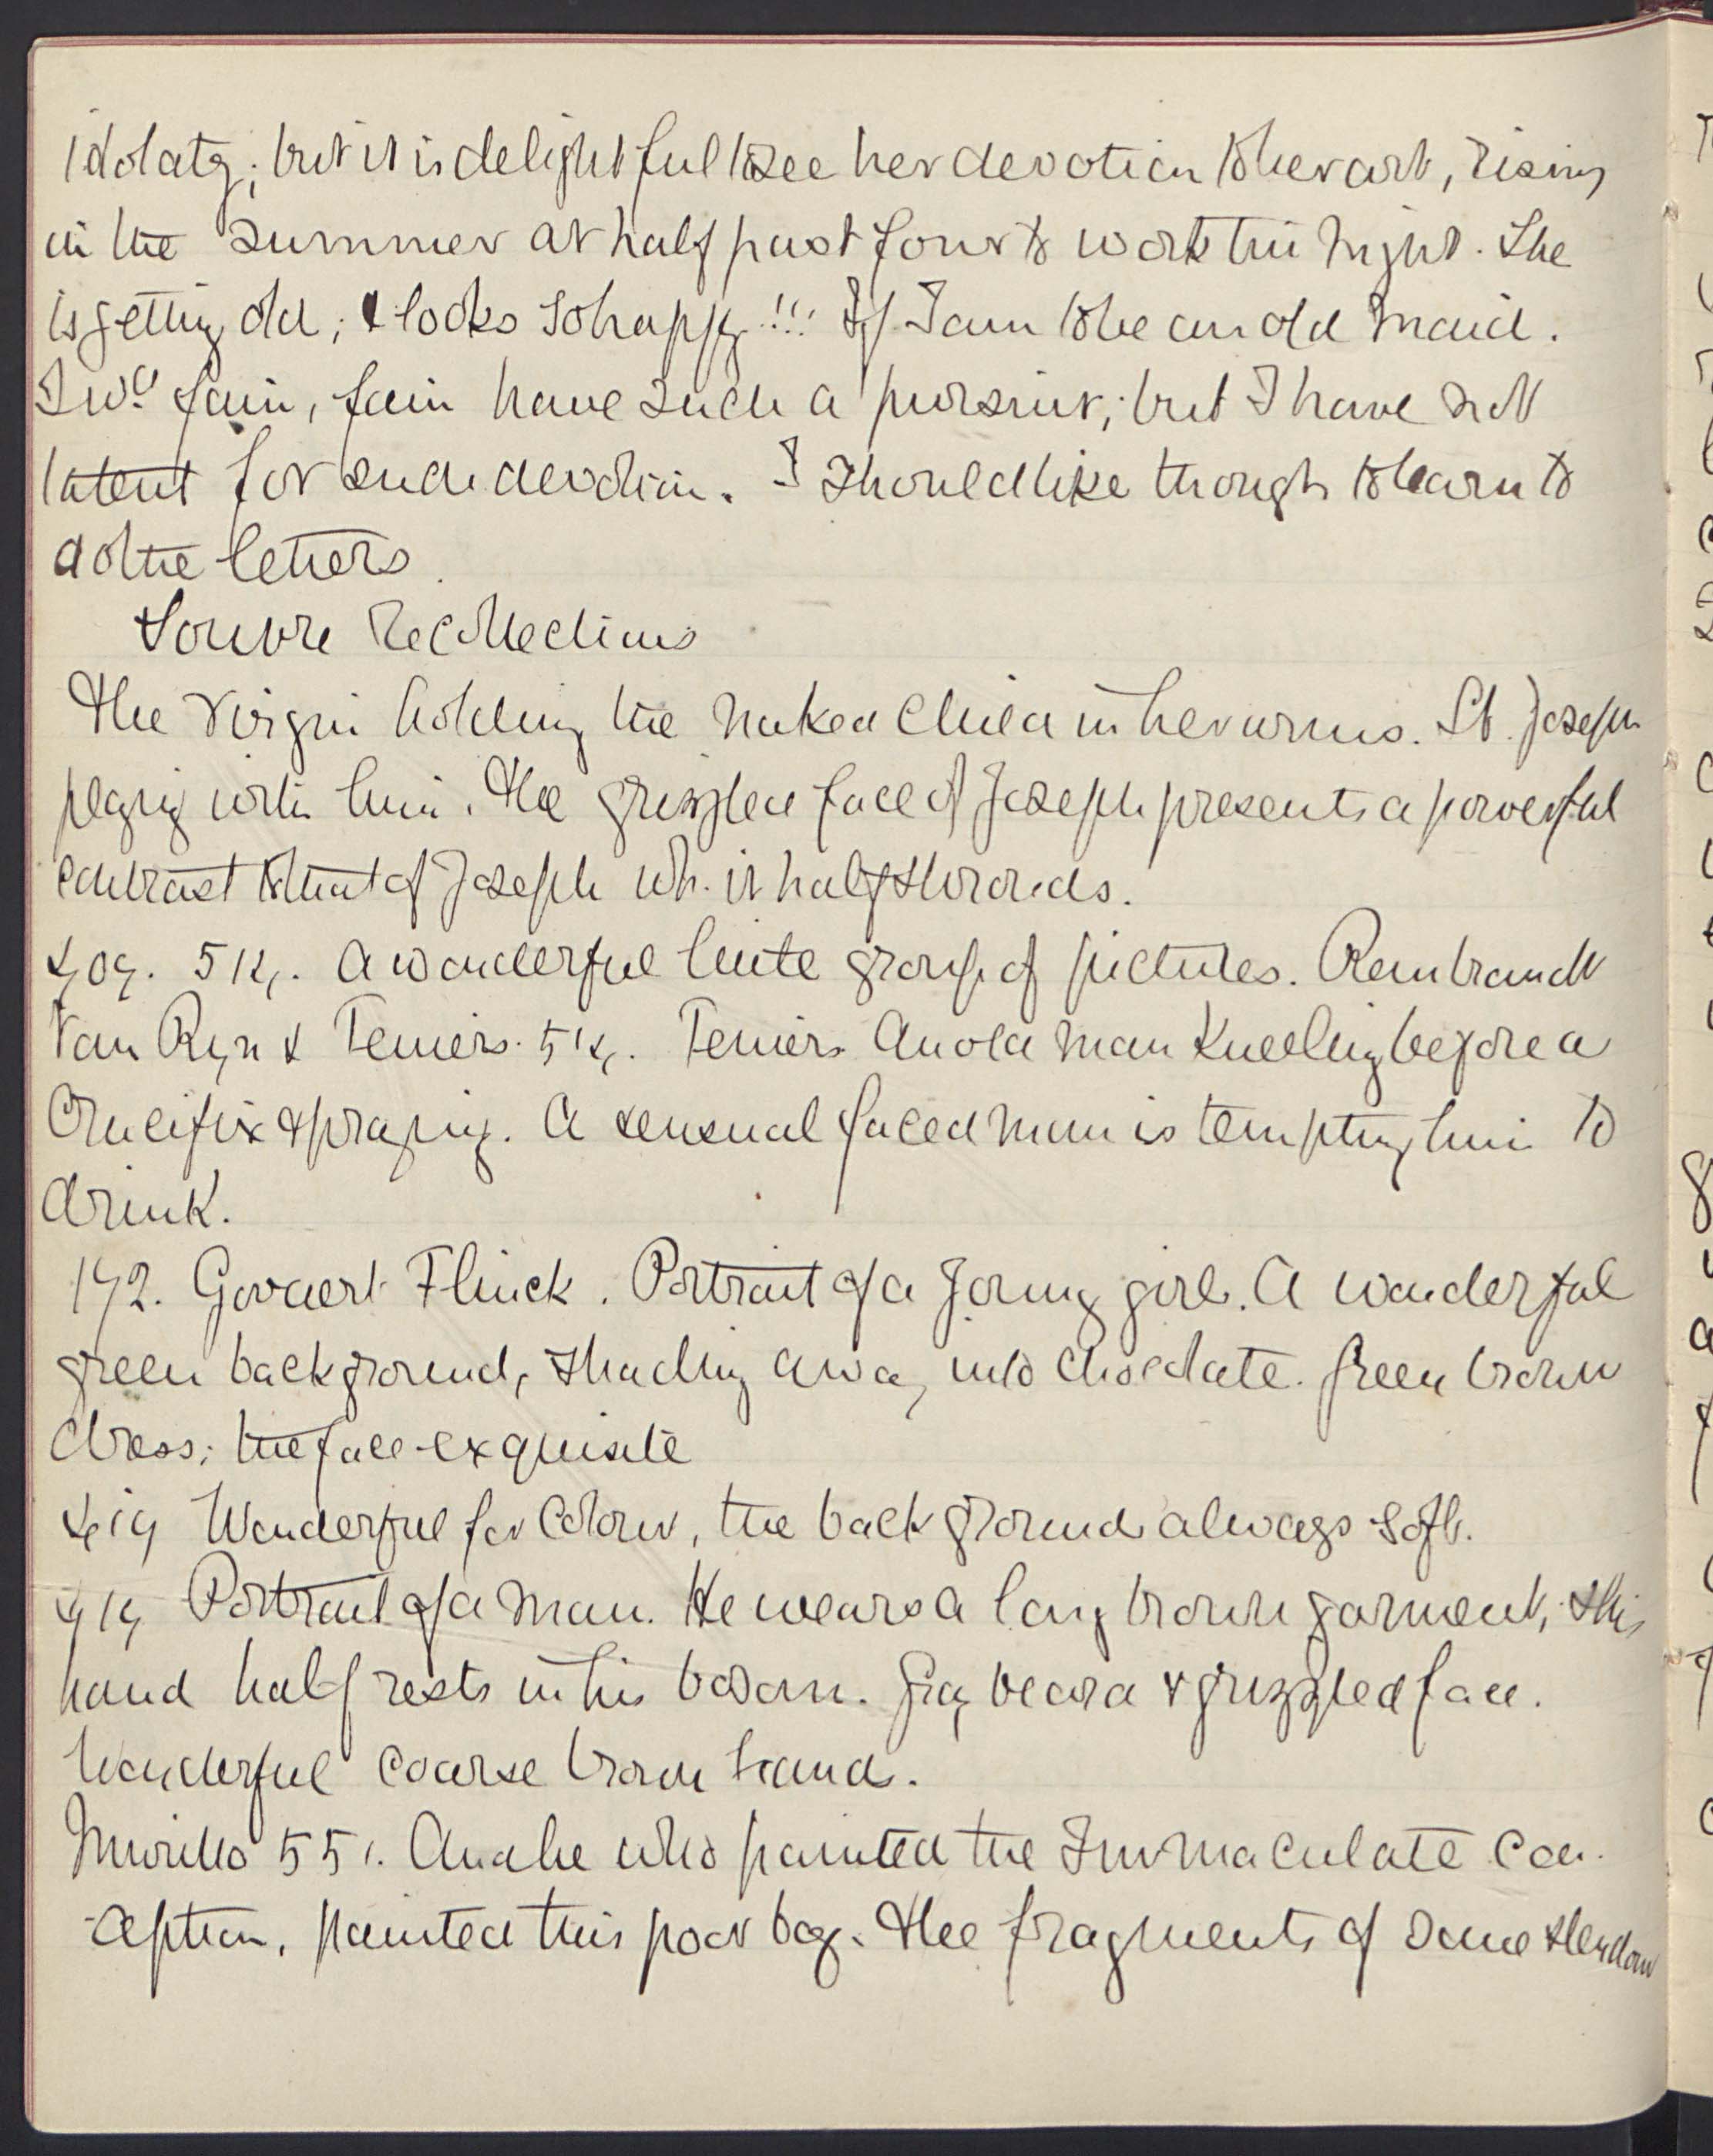 idolaty; but it is delightful to see her devotion to her art, rising
in the summer at half past four to work till night. She
is getting old; & looks so happy!!! If I am to be an old maid.
I wd. fain, fain have such a pursuit; but I have not
latent for such devotion. I should like though to learn to
do the letters.
Louvre Recollections
The Virgin holding the naked Child in her arms. St. Joseph
playing with him. The grizzled face of Joseph presents a powerful
contrast to that of Joseph wh. is half shrouds.
A wonderful little group of pictures. Rembrandt
Van Ryn & Teniers. Teniers An old man kneeling before a
Crucifix & praying. A sensual faced man is tempting him to
drink.
172. Govaert Flinck. Portrait of a young girl. A wonderful
green background, shading away into chocolate. Green brown
dress; the face exquisite
Wonderful for Colour, the background always soft.
Portrait of a man. He wears a long brown garment, & his
hand half rests in his bosom. Gray beard & grizzled face.
Wonderful coarse brown hand.
Murillo 551. And he who painted the Immaculate Con-
ception, painted this poor boy. The fragments of some